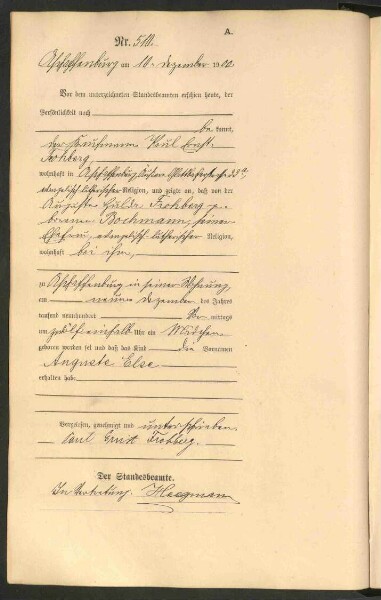 A.
Nr. 510.
Aschaffenburg am 10. Dezember 1900.
Vor dem unterzeichneten Standesbeamten erschien heute, der
Persönlichkeit nach
be kannt,
der Kaufmann Paul Ernst
Frohberg,
wohnhaft in Aschaffenburg
evangelisch-lutherischer Religion, und zeigte an, daß von der
Auguste Hulda Frohberg ge-
borenen Bochmann, seiner
Ehefrau, evangelisch-lutherischer Religion,
wohnhaft bei ihm,
zu Aschaffenburg in seiner Wohnung
am neunten Dezember des Jahres
tausend neunhundert Vor mittags
um zwölf einhalb Uhr ein Mädchen
geboren worden sei und daß das Kind die Vornamen
Auguste Else
erhalten habe
Vorgelesen, genehmigt und unterschrieben
Paul Ernst Frohberg.
Der Standesbeamte.
In Vertretung. Hegmann